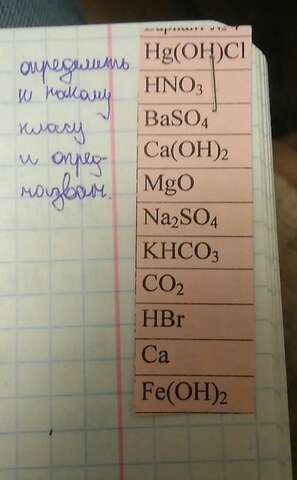 определить
к какому
класу
и опред-
назван.
Hg(OH)Cl
HNO₃
BaSO₄
Ca(OH)₂
MgO
Na₂SO₄
KHCO₃
CO₂
HBr
Ca
Fe(OH)₂